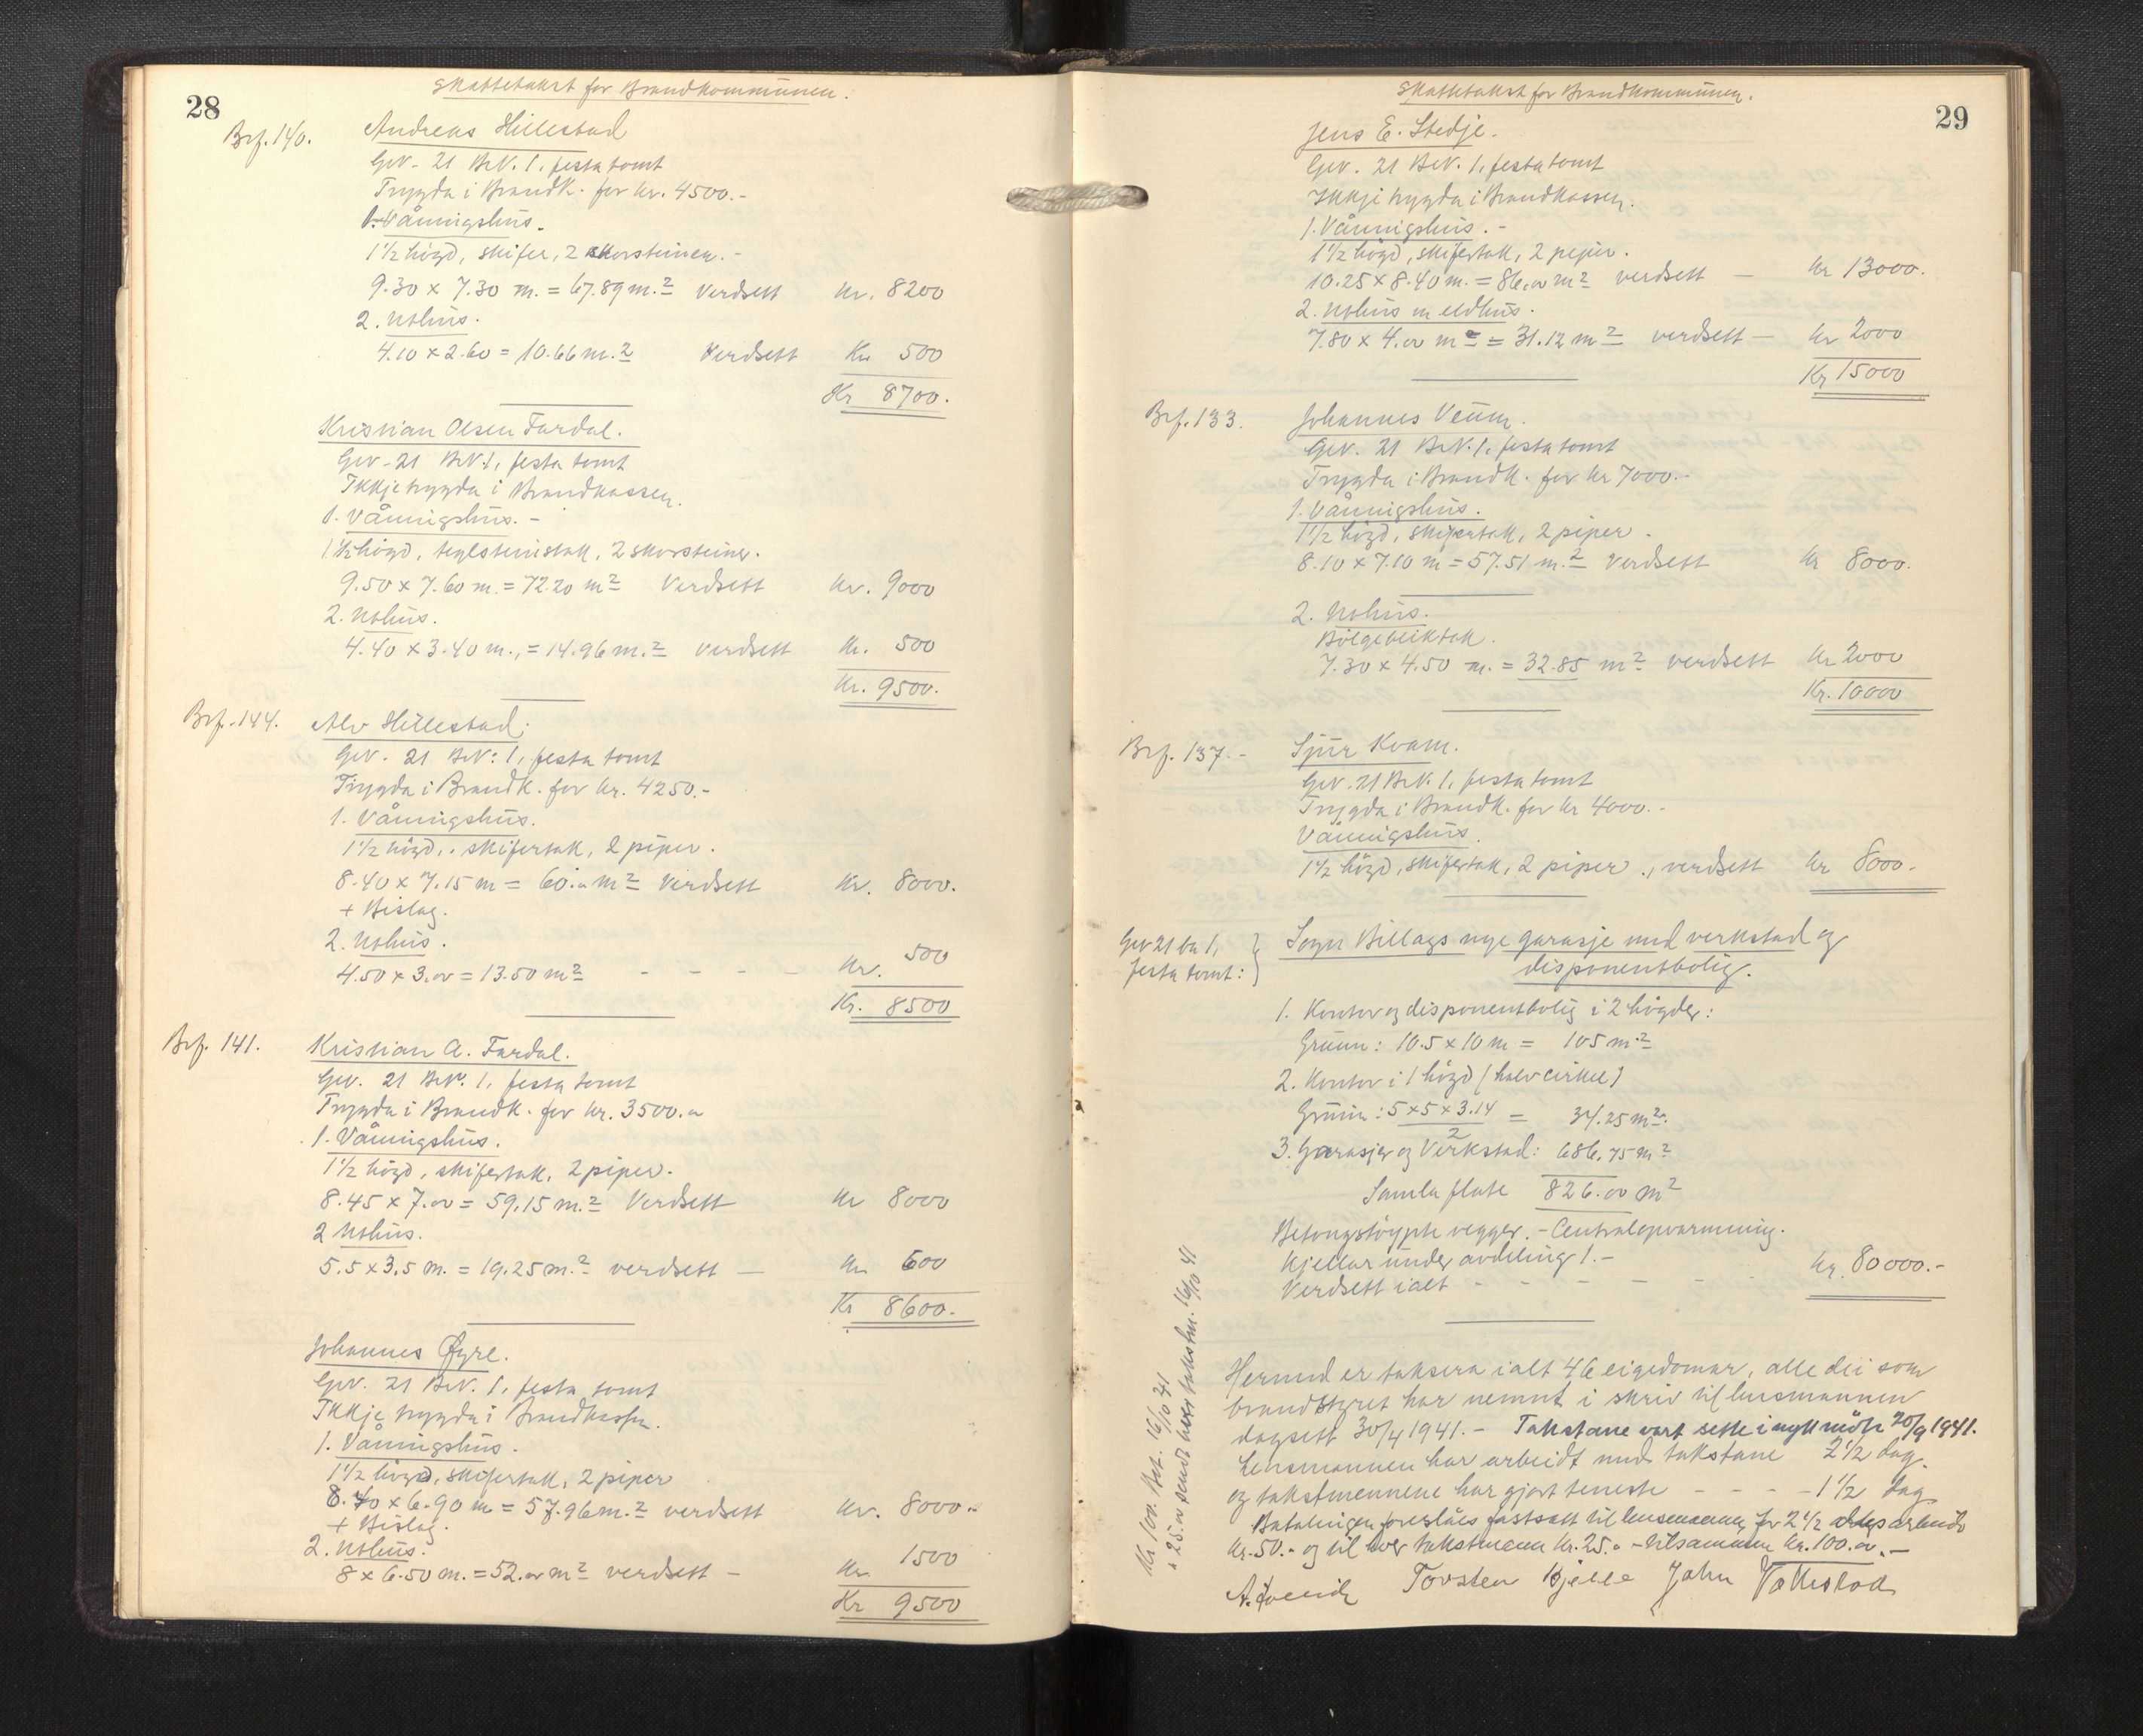 28
Skattetakst for Brandkommunen.
Brf. 140.
Andreas Hillestad
Gnr. 21 Bnr. 1, festa tomt
Trygda i Brandk. for kr. 4500.-
1. Våningshus.
1½ högd, skifer, 2 skorsteiner.-
9.30 x 7.30 m. = 67.89 m.² verdsett kr. 8200
2. Uthus.
4.10 x 2.60 = 10.66 m.² Verdsett Kr 500
Kr 8700.
Kristian Olsen Fardal.
Gnr. 21 Bnr. 1, festa tomt
Ikkje trygda i Brandkassen.
1. Våningshus.-
1½ högd, teglsteinstak, 2 skorsteiner.
9.50 x 7.60 m. = 72.20 m² Verdsett kr. 9000
2. Uthus.
4.40 x 3.40 m., = 14.96 m.² verdsett kr. 500
Kr. 9500.
Brf. 144.
Alv Hillestad.
Gnr. 21 Bnr. 1, festa tomt
Trygda i Brandk. for kr. 4250.-
1. Våningshus.
1½ högd, skifertak, 2 piper.
8.40 x 7.15 m = 60.00 m² verdsett kr. 8000.
+ Bislag.
2. Uthus.
4.50 x 3.00 = 13.50 m² - - - - kr. 500
Kr. 8500
Brf. 141.
Kristian A. Fardal.
Gnr. 21 Bnr. 1, festa tomt
Trygda i Brandk. for kr. 3500.00
1. Våningshus.
1½ högd, skifertak, 2 piper.
8.45 x 7.00 = 59.15 m.² Verdsett kr 8000
2 Uthus.
5.5 x 3.5 m. = 19.25 m.² verdsett — kr 600
Kr 8600.
Johannes Øyre.
Gnr. 21 Bnr. 1, festa tomt
Ikkje trygda i Brandkassen.
1. Våningshus.
1½ högd, skifertak, 2 piper
8.40 x 6.90 m = 57.96 m.² verdsett kr. 8000.-
+ Bislag.
2. Uthus.
8 x 6.50 m. = 52.00 m² verdsett - kr 1500
Kr 9500
29
Skattetakst for Brandkommunen.
Jens E. Stedje.
Gnr. 21 Bnr. 1, festa tomt
Ikkje trygda i Brandkassen.
1. Våningshus.-
1½ högd, skifertak, 2 piper.
10.25 x 8.40 m. = 86.00 m² verdsett — kr 13000.
2. Uthus m eldhus.
7.80 x 4.00 m = 31.12 m² verdsett — kr 2000
Kr 15000
Brf. 133.
Johannes Veum.
Gnr. 21 Bnr. 1. festa tomt
Trygda i Brandk. for kr 7000.-
1. Våningshus.
1½ högd, skifertak, 2 piper.
8.10 x 7.10 m = 57.51 m.² Verdsett kr 8000.
2. Uthus.
Bölgebliktak.
7.30 x 4.50 m. = 32.85 m² verdsett kr 2000
Kr. 10000
Brf. 137.-
Sjur Kvam.
Gnr. 21 Bnr. 1, festa tomt
Trygda i Brandk. for kr 4000.-
Våningshus.
1½ högd, skifertak, 2 piper., verdsett kr 8000.-
Gnr 21 bn 1,
festa tomt:
Sogn Billags nye garasje med verkstad og
disponentbolig.
1. Kontor og disponentbolig i 2 högder:
Grunn: 10.5 x 10 m = 105 m.²
2. Kontor i 1 högd (halvcirkel)
Grunn: 5 x 5 x 3.14 = 34.25 m².
2
3. Garasjer og Verkstad: 686.75 m²
Samla flate 826.00 m²
Betongstöypte vegger.- Centralopvarmning.
Kjellar under avdeling 1.-
Verdsett ialt - - - - - kr. 80000.-
Hermed er taksera ialt 46 eigedomar, alle dei som
brandstyret har nemnt i skriv til lensmannen
dagsett 30/4 1941.- Takstane vart sette i nytt möte 20/9 1941.
Lensmannen har arbeidt med takstane 2½ dag.
og takstmennene har gjort teneste - - - - 1½ dag
Betalingen foreslåes fastsatt til lensmannen for 2½ dags arbeide
kr. 50.- og til hver takstmann kr. 25.- - tilsammen kr. 100.00.-
Torsten Kjelle John Vatlestad
Kr 100. Bet. 16/10 41
a 25.00 sendt hver takstm. 16/10 41